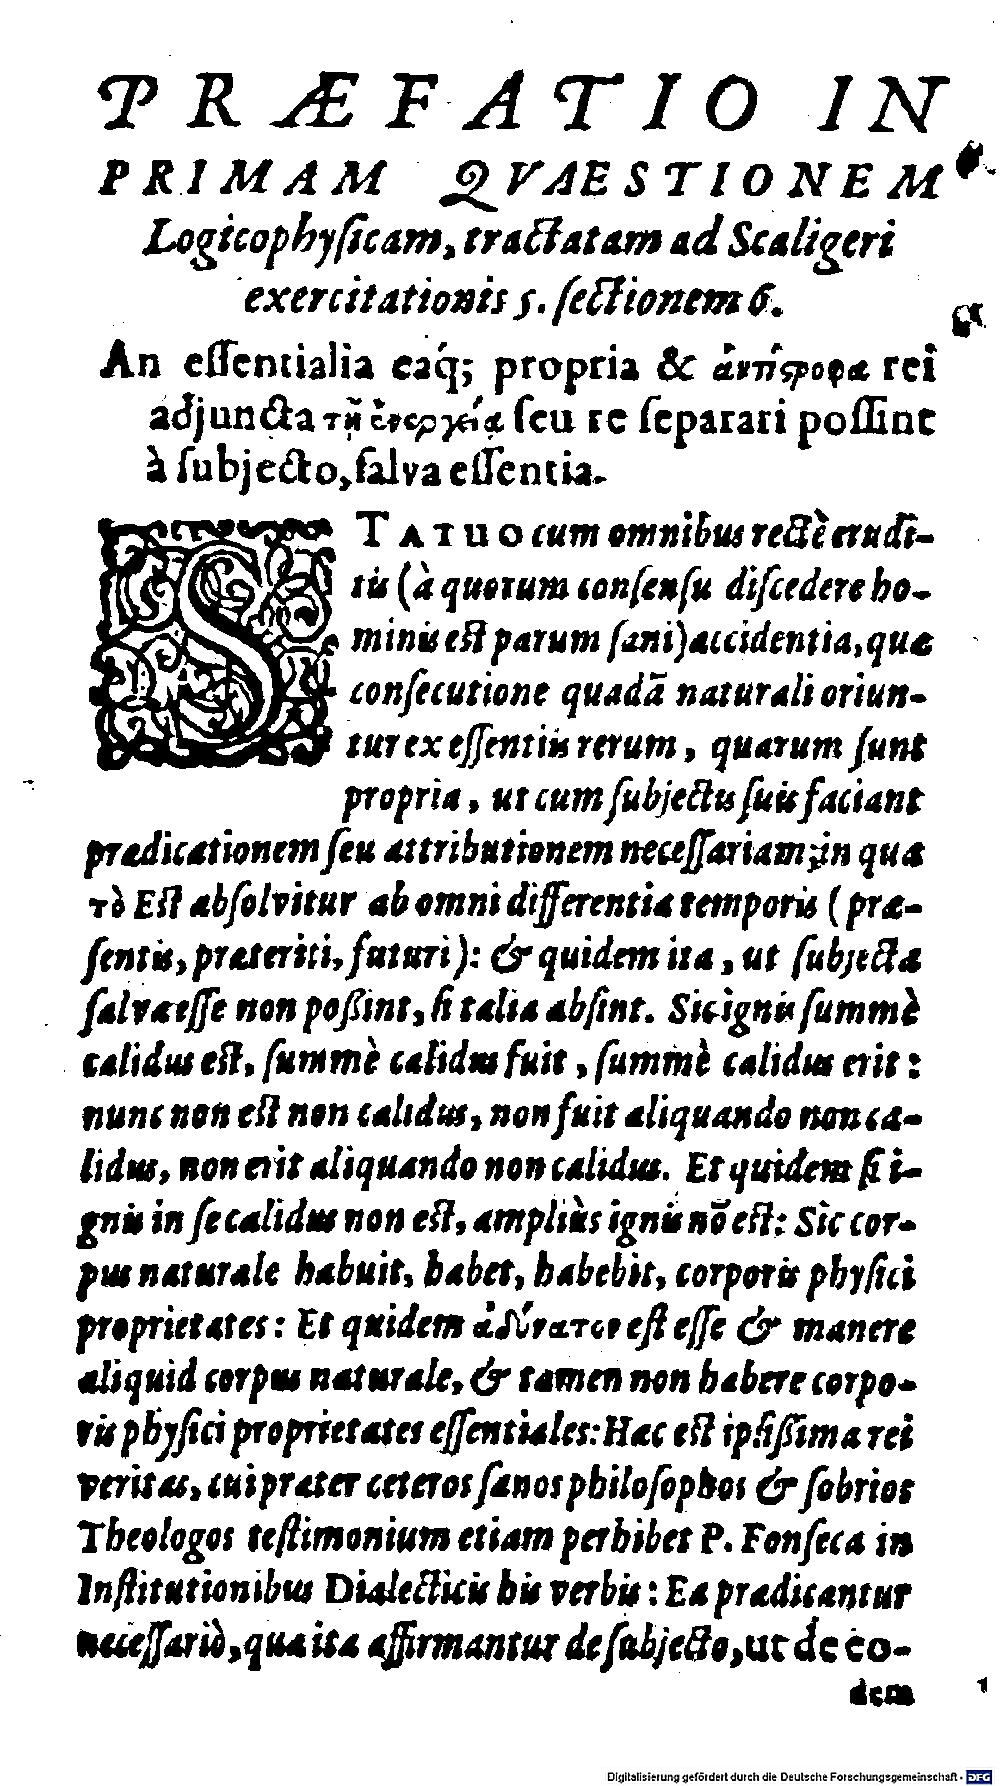 PRÆFATIO IN
PRIMAM QVAESTIONEM
Logicophyſicam, tractatam ad Scaligeri
exercitationis 5. ſectionem 6.
An eſſentialia eaq́; propria & ἀντίςροφα rei
adjuncta τῇ ἐνεργείᾳ ſeu re ſeparari poſſint
à ſubjecto, ſalva eſſentia.
STATUO cum omnibus rectè erudi-
tis (à quorum conſenſu diſcedere ho-
minis eſt parum ſani) accidentia, quæ
conſecutione quadã naturali oriun-
tur ex eſſentiis rerum, quarum ſunt
propria, ut cum ſubjectis ſuis faciant
prædicationem ſeu attributionem neceſſariam; in qua
τὸ Eſt abſolvitur ab omni differentia temporis (præ-
ſentis, præteriti, futuri): & quidem ita, ut ſubjecta
ſalva eſſe non poßint, ſi talia abſint. Sic ignis ſummè
calidus eſt, ſummè calidus fuit, ſummè calidus erit:
nunc non eſt non calidus, non fuit aliquando non ca-
lidus, non erit aliquando non calidus. Et quidem ſi i-
gnis in ſe calidus non eſt, ampliùs ignis nõ eſt: Sic cor-
pus naturale habuit, habet, habebit, corporis phyſici
proprietates: Et quidem ἀδύνατον eſt eſſe & manere
aliquid corpus naturale, & tamen non habere corpo-
ris phyſici proprietates eſſentiales: Hac eſt ipſißima rei
veritas, cui præter ceteros ſanos philoſophos & ſobrios
Theologos teſtimonium etiam perhibet P. Fonſeca in
Inſtitutionibus Dialecticis his verbis: Ea prædicantur
neceſſariò, quæ ita affirmantur de ſubjecto, ut de eo-
dem
Digitalisierung gefördert durch die Deutsche Forschungsgemeinschaft - DFG